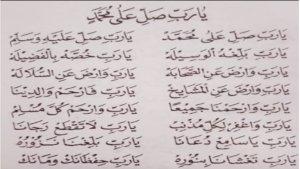 يَارَبِّ صَلِّ عَلَى مُحَمَّدْ
يَارَبِّ صَلِّ عَلَى مُحَمَّدْ يَارَبِّ صَلِّ عَلَيْهِ وَسَلِّمْ
يَارَبِّ بَلِّغْهُ الْوَسِيْلَةْ يَارَبِّ خُصَّهُ بِالْفَضِيْلَةْ
يَارَبِّ وَارْضَ عَنِ الصَّحَابَةْ يَارَبِّ وَارْضَ عَنِ السُّلَالَةْ
يَارَبِّ وَارْضَ عَنِ الْمَشَايِخْ يَارَبِّ فَارْحَمْ وَالِدِيْنَا
يَارَبِّ وَارْحَمْنَا جَمِيْعًا يَارَبِّ وَارْحَمْ كُلَّ مُسْلِمْ
يَارَبِّ وَاغْفِرْ لِكُلِّ مُذْنِبْ يَارَبِّ لَا تَقْطَعْ رَجَانَا
يَارَبِّ يَاسَامِعْ دُعَانَا يَارَبِّ بَلِّغْنَا نَزُوْرُهْ
يَارَبِّ تَغْشَانَا بِنُوْرِهْ يَارَبِّ حِفْظَانَكْ وَمَانَكْ